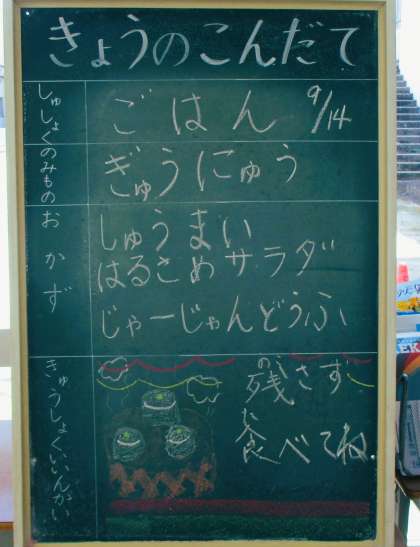 きょうのこんだて
しゅしょく ごはん 9/14
のみもの ぎゅうにゅう
おかず しゅうまい
はるさめサラダ
じゃーじゃんどうふ
きゅうしょくいいんかい
残さず
のこ
食べてね
た